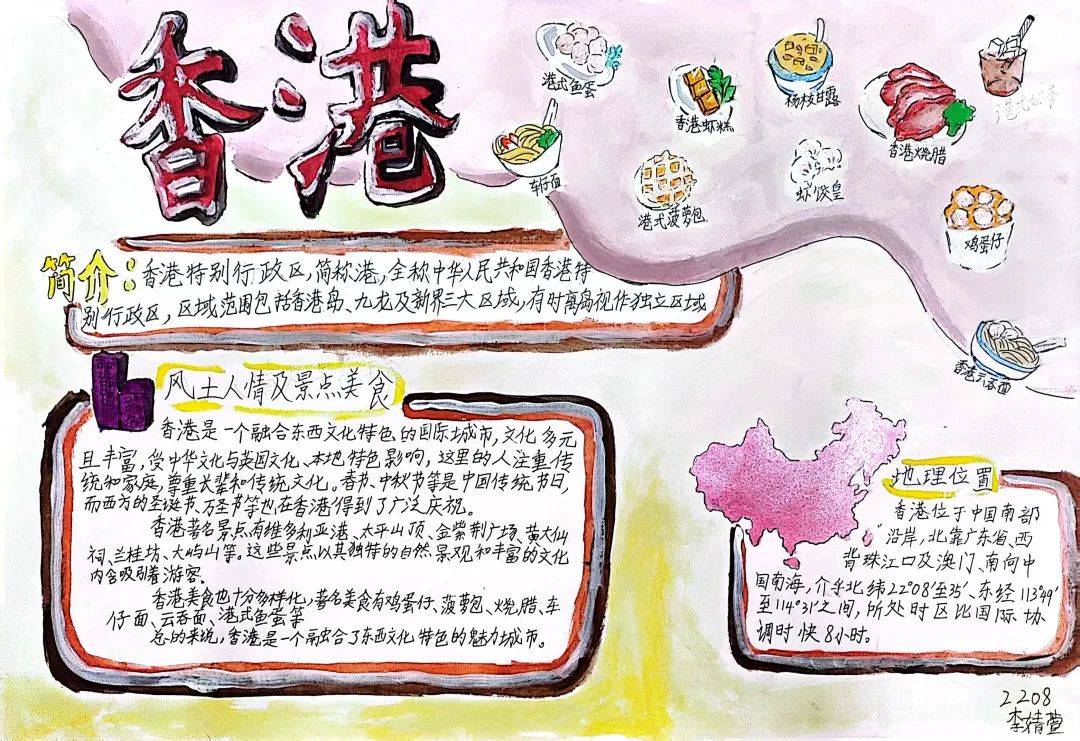 香港
港式鱼蛋
香港虾糕
杨枝甘露
香港烧腊
港式奶茶
车仔面
港式菠萝包
虾饺皇
鸡蛋仔
香港云吞面
简介：
香港特别行政区，简称港，全称中华人民共和国香港特
别行政区，区域范围包括香港岛、九龙及新界三大区域，有时离岛视作独立区域
风土人情及景点美食
香港是一个融合东西文化特色的国际城市，文化多元
且丰富，受中华文化与英国文化、本地特色影响，这里的人注重传
统和家庭，尊重长辈和传统文化。春节、中秋节等是中国传统节日，
而西方的圣诞节、万圣节等也在香港得到了广泛庆祝。
香港著名景点有维多利亚港、太平山顶、金紫荆广场、黄大仙
祠、兰桂坊、大屿山等。这些景点以其独特的自然景观和丰富的文化
内含吸引着游客.
香港美食也十分多样化，著名美食有鸡蛋仔、菠萝包、烧腊、车
仔面、云吞面、港式鱼蛋等
总的来说，香港是一个融合了东西文化特色的魅力城市。
地理位置
香港位于中国南部
沿岸，北靠广东省、西
背珠江口及澳门、南向中
国南海，介乎北纬22°08′至35′、东经113°49′
至114°31′之间，所处时区比国际协
调时快8小时。
2208
李婧萱